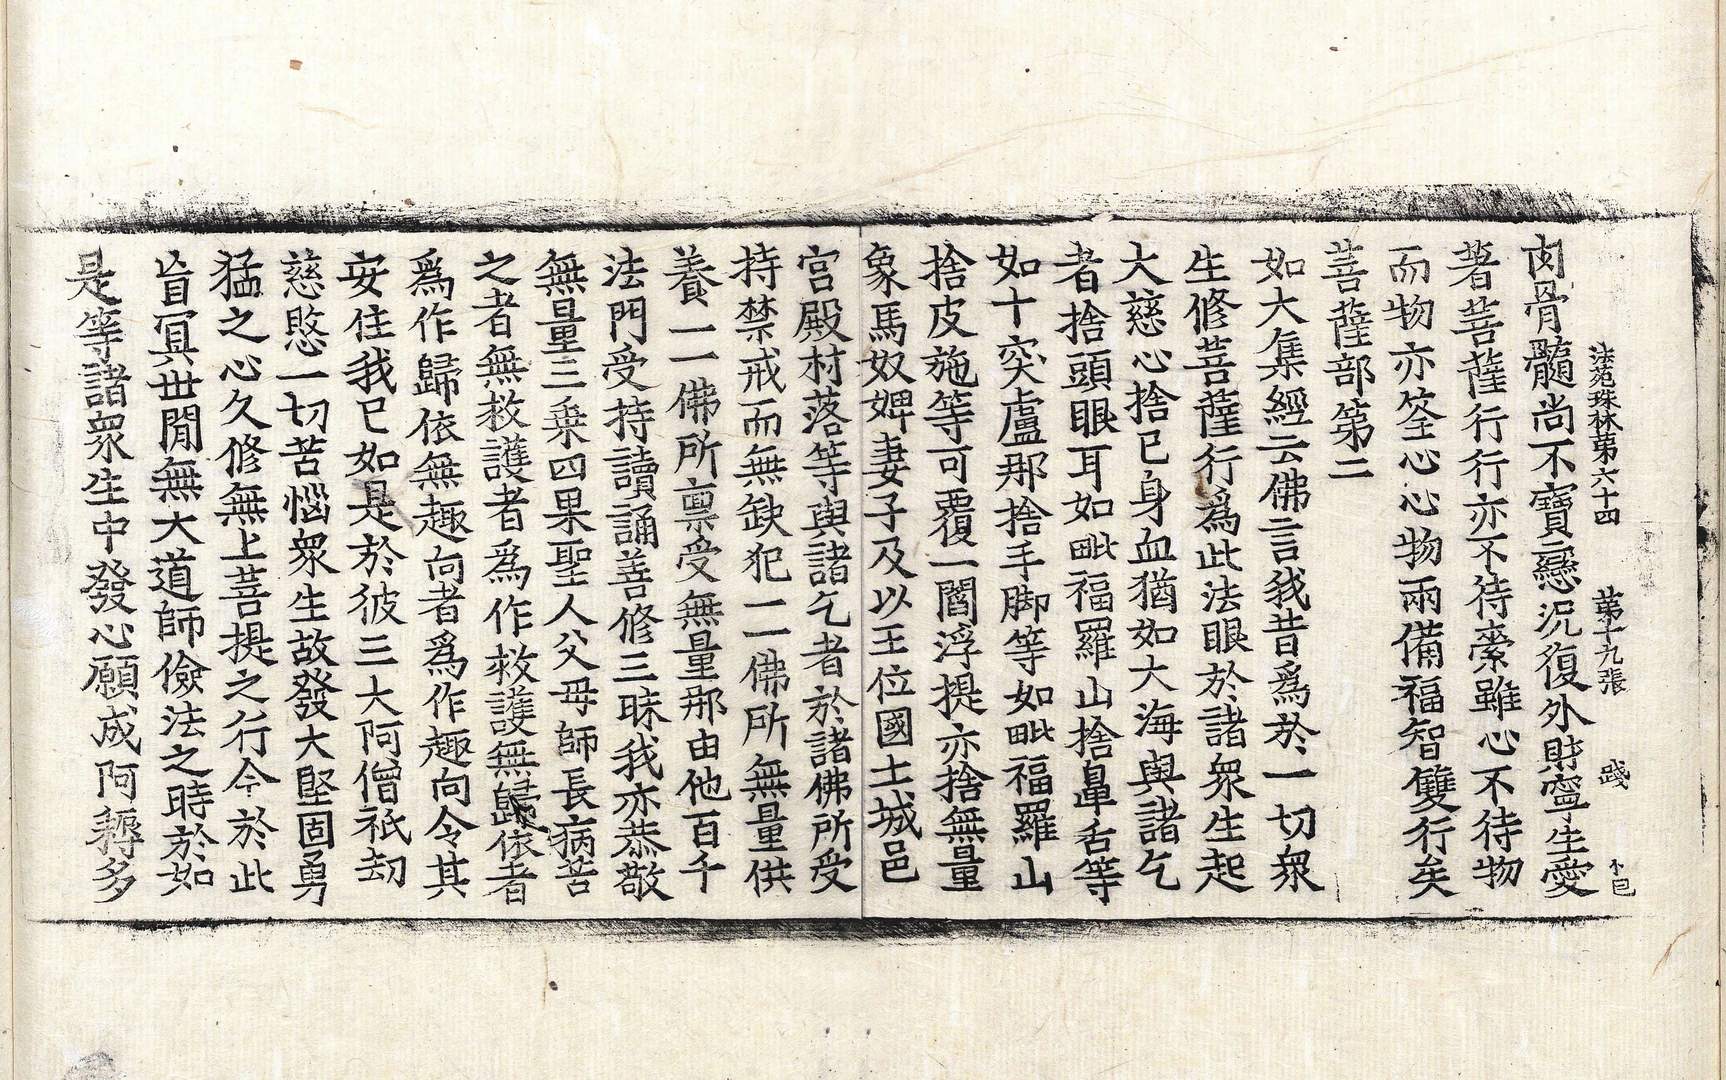 法苑珠林第六十四 第十九張 㦮 小巳
肉骨髓尚不寶戀況復外財寧生愛
著菩薩行行亦不待索雖心不待物
而物亦答心心物兩備福智雙行矣
菩薩部第二
如大集經云佛言我昔爲於一切衆
生修菩薩行爲此法眼於諸衆生起
大慈心捨已身血猶如大海與諸乞
者捨頭眼耳如毗福羅山捨鼻舌等
如十突盧那捨手脚等如毗福羅山
捨皮施等可覆一閻浮提亦捨無量
象馬奴婢妻子及以王位國土城邑
宮殿村落等與諸乞者於諸佛所受
持禁戒而無缺犯一一佛所無量供
養一一佛所禀受無量那由他百千
法門受持讀誦善修三昧我亦恭敬
無量三乘四果聖人父母師長病苦
之者無救護者爲作救護無歸依者
爲作歸依無趣向者爲作趣向令其
安住我已如是於彼三大阿僧祇劫
慈愍一切苦惱衆生故發大堅固勇
猛之心久修無上菩提之行今於此
盲冥世閒無大道師儉法之時於如
是等諸衆生中發心願成阿耨多